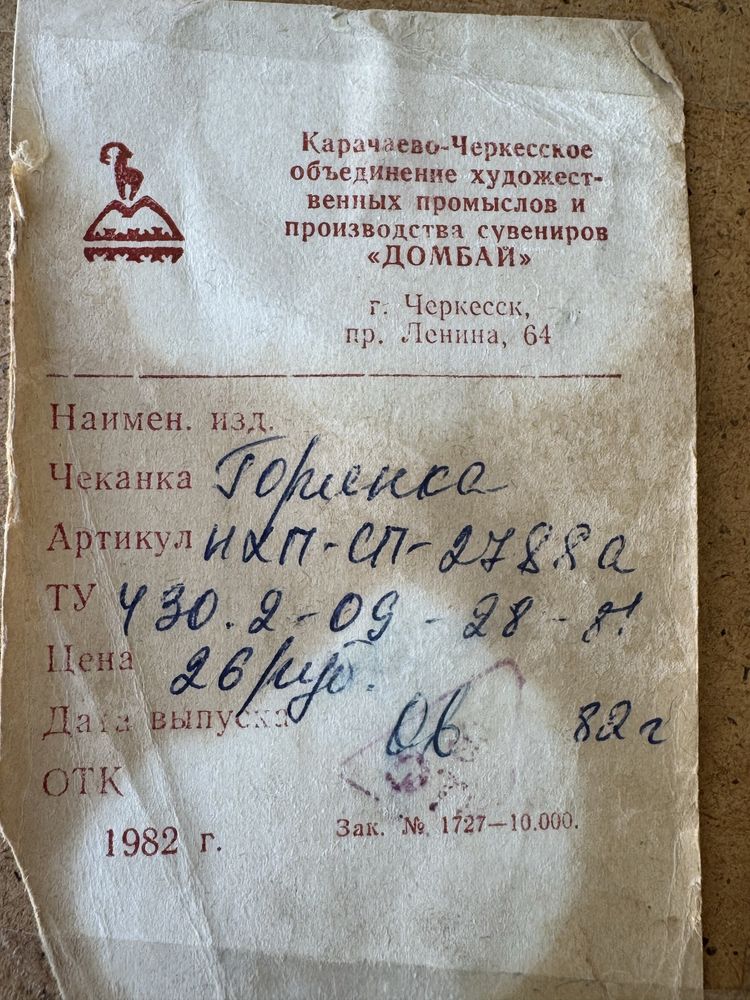 Карачаево-Черкесское
объединение художест-
венных промыслов и
производства сувениров
«ДОМБАЙ»
г. Черкесск,
пр. Ленина, 64
Наимен. изд.
Чеканка Горянка
Артикул НХП-СП-2788а
ТУ 430.2-09-28-81
Цена 26 руб.
Дата выпуска 06 82 г
ОТК
1982 г.
Зак. № 1727—10.000.